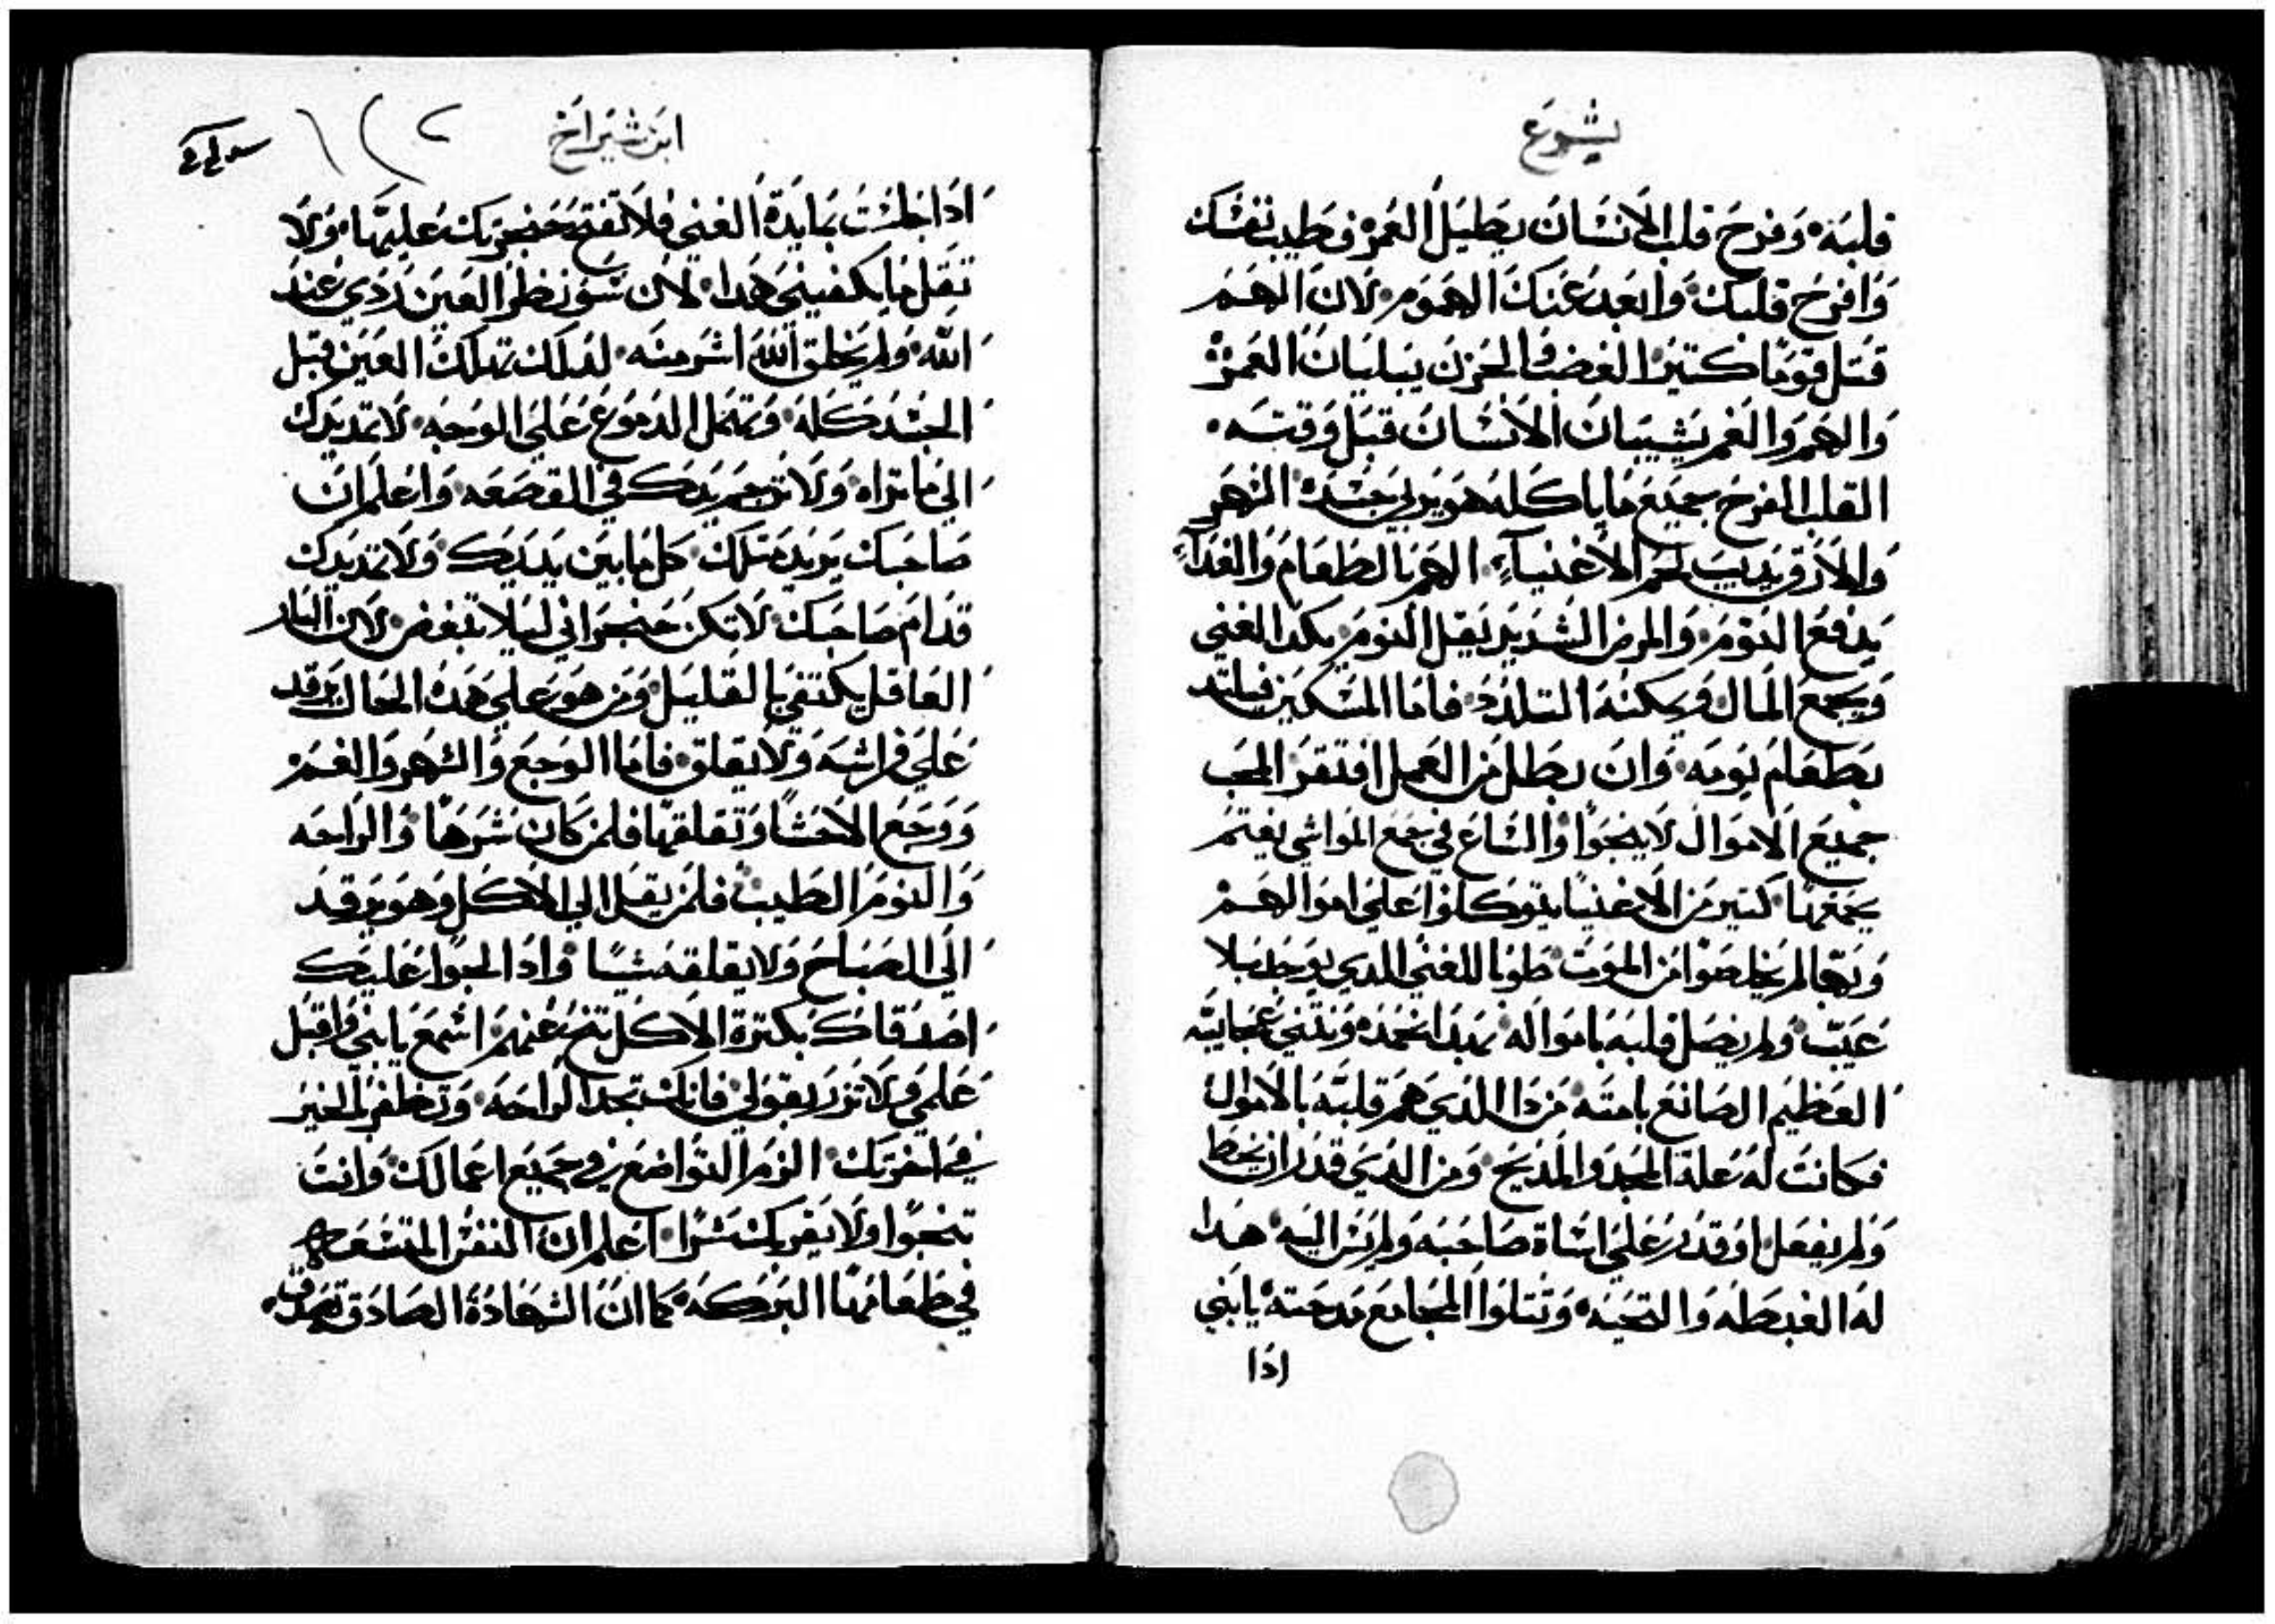 يشوع
قلبه وفرح قلب الانسان يطيل العمر فطيب نفسك
وافرح قلبك وابعد عنك الهموم لان الهم
قتل قومًا كتير الغضب والحزن يبليان العمر
والهم والغم يشيبان الانسان قبل وقته
القلب الفرح بجميع ما ياكله هو يربي جسده السهر
والارق يديب لحم الاغنياء الهم بالطعام والغداء
يدفع النوم والمرض الشديد يقل النوم يكد الغني
ويجمع المال ويمكنه التلدد فاما المسكين فيلتد
بطعام يومه وان بطل من العمل افتقر المحب
جميع الاموال لا ينجوا والساع في جمع المواشي يغتم
بجمعها كتير من الاغنيا يتوكلوا علي اموالهم
وبها لم يخلصوا من الموت طوبا للغني الدي يوجد بلا
عيب ولم يضل قلبه باموا له بهدا نمجده ونتني عجايبه
العظيم الصانع بامته من دا الدي هم قلبه بالاموال
فكانت له علة المجد والمديح ومن الدي قدر ان يخط
ولم يفعل او قدر علي اساة صاحبه ولم يسر اليه هدا
له الغبطه والتحيه وتتلوا المجامع مدحته يابني
ادا
ابن شيراخ
ادا جلست بمايدة الغني فلا تفتح حنجرتك عليها ولا
تقل ما يكفيني هدا لان سو نظر العين ردي عند
الله ولم يخلق الله اشر منه لدلك تهلك العين قبل
الجسد كله وتهمل الدموع علي الوجه لا تمد يدك
الي ما تراه ولا تزحم يدك في القصعه واعلم ان
صاحبك يريد متلك كل ما بين يديك ولا تمد يدك
قدام صاحبك لا تكن حنجراني ليلا تبغض لان النار
العاقل يكتفي بالقليل ومن هو علي هده الحال يرقد
علي فراشه ولا يقلق فاما الوجع والسهر والغم
ووجع الاحشا وتقلقها فلمن كان شرها والراحه
والنوم الطيب فلمن يقل الي الاكل وهو يرقد
الي الصباح ولا يقلقه شيًا وادا لجوا عليك
اصدقاك بكترة الاكل تنح عنهم اسمع يابني واقبل
علمي ولا تزر بقولي فانك تجد الراحه وتظفر بالخير
في اخرتك الزم التواضع في جميع اعمالك وانت
تنجوا ولا يقربك شرًا اعلم ان النفس المتسعه
في طعامها البركه كما ان الشهادة الصادق تعرف